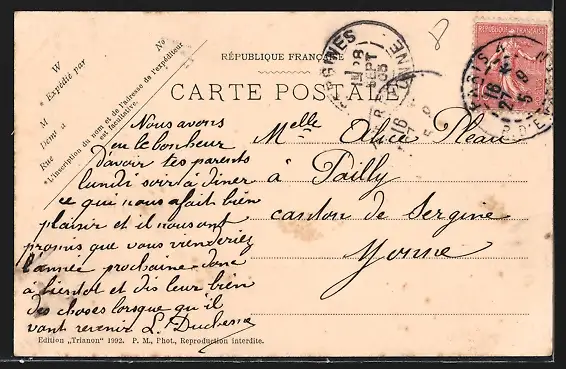 RÉPUBLIQUE FRANÇAISE
CARTE POSTALE
W
Expédié par
M
Demt à
Rue
No
*L'inscription du nom et de l'adresse de l'expéditeur
est facultative.
Nous avons
eu le bonheur
d'avoir tes parents
lundi soir à diner
ce qui nous a fait bien
plaisir et il nous ont
promis que vous vienderiez
l'année prochaine donc
à bientot et dis leur bien
des choses lorsque qu'il
vont revenir L. Duchesne
Melle Alice Pleau
à Pailly
canton de Sergine
Yonne
SERGINES
YONNE
28
SEPT
05
PARIS
16
27
9
5
RÉPUBLIQUE FRANÇAISE
Edition „Trianon" 1992. P. M., Phot., Reproduction interdite.